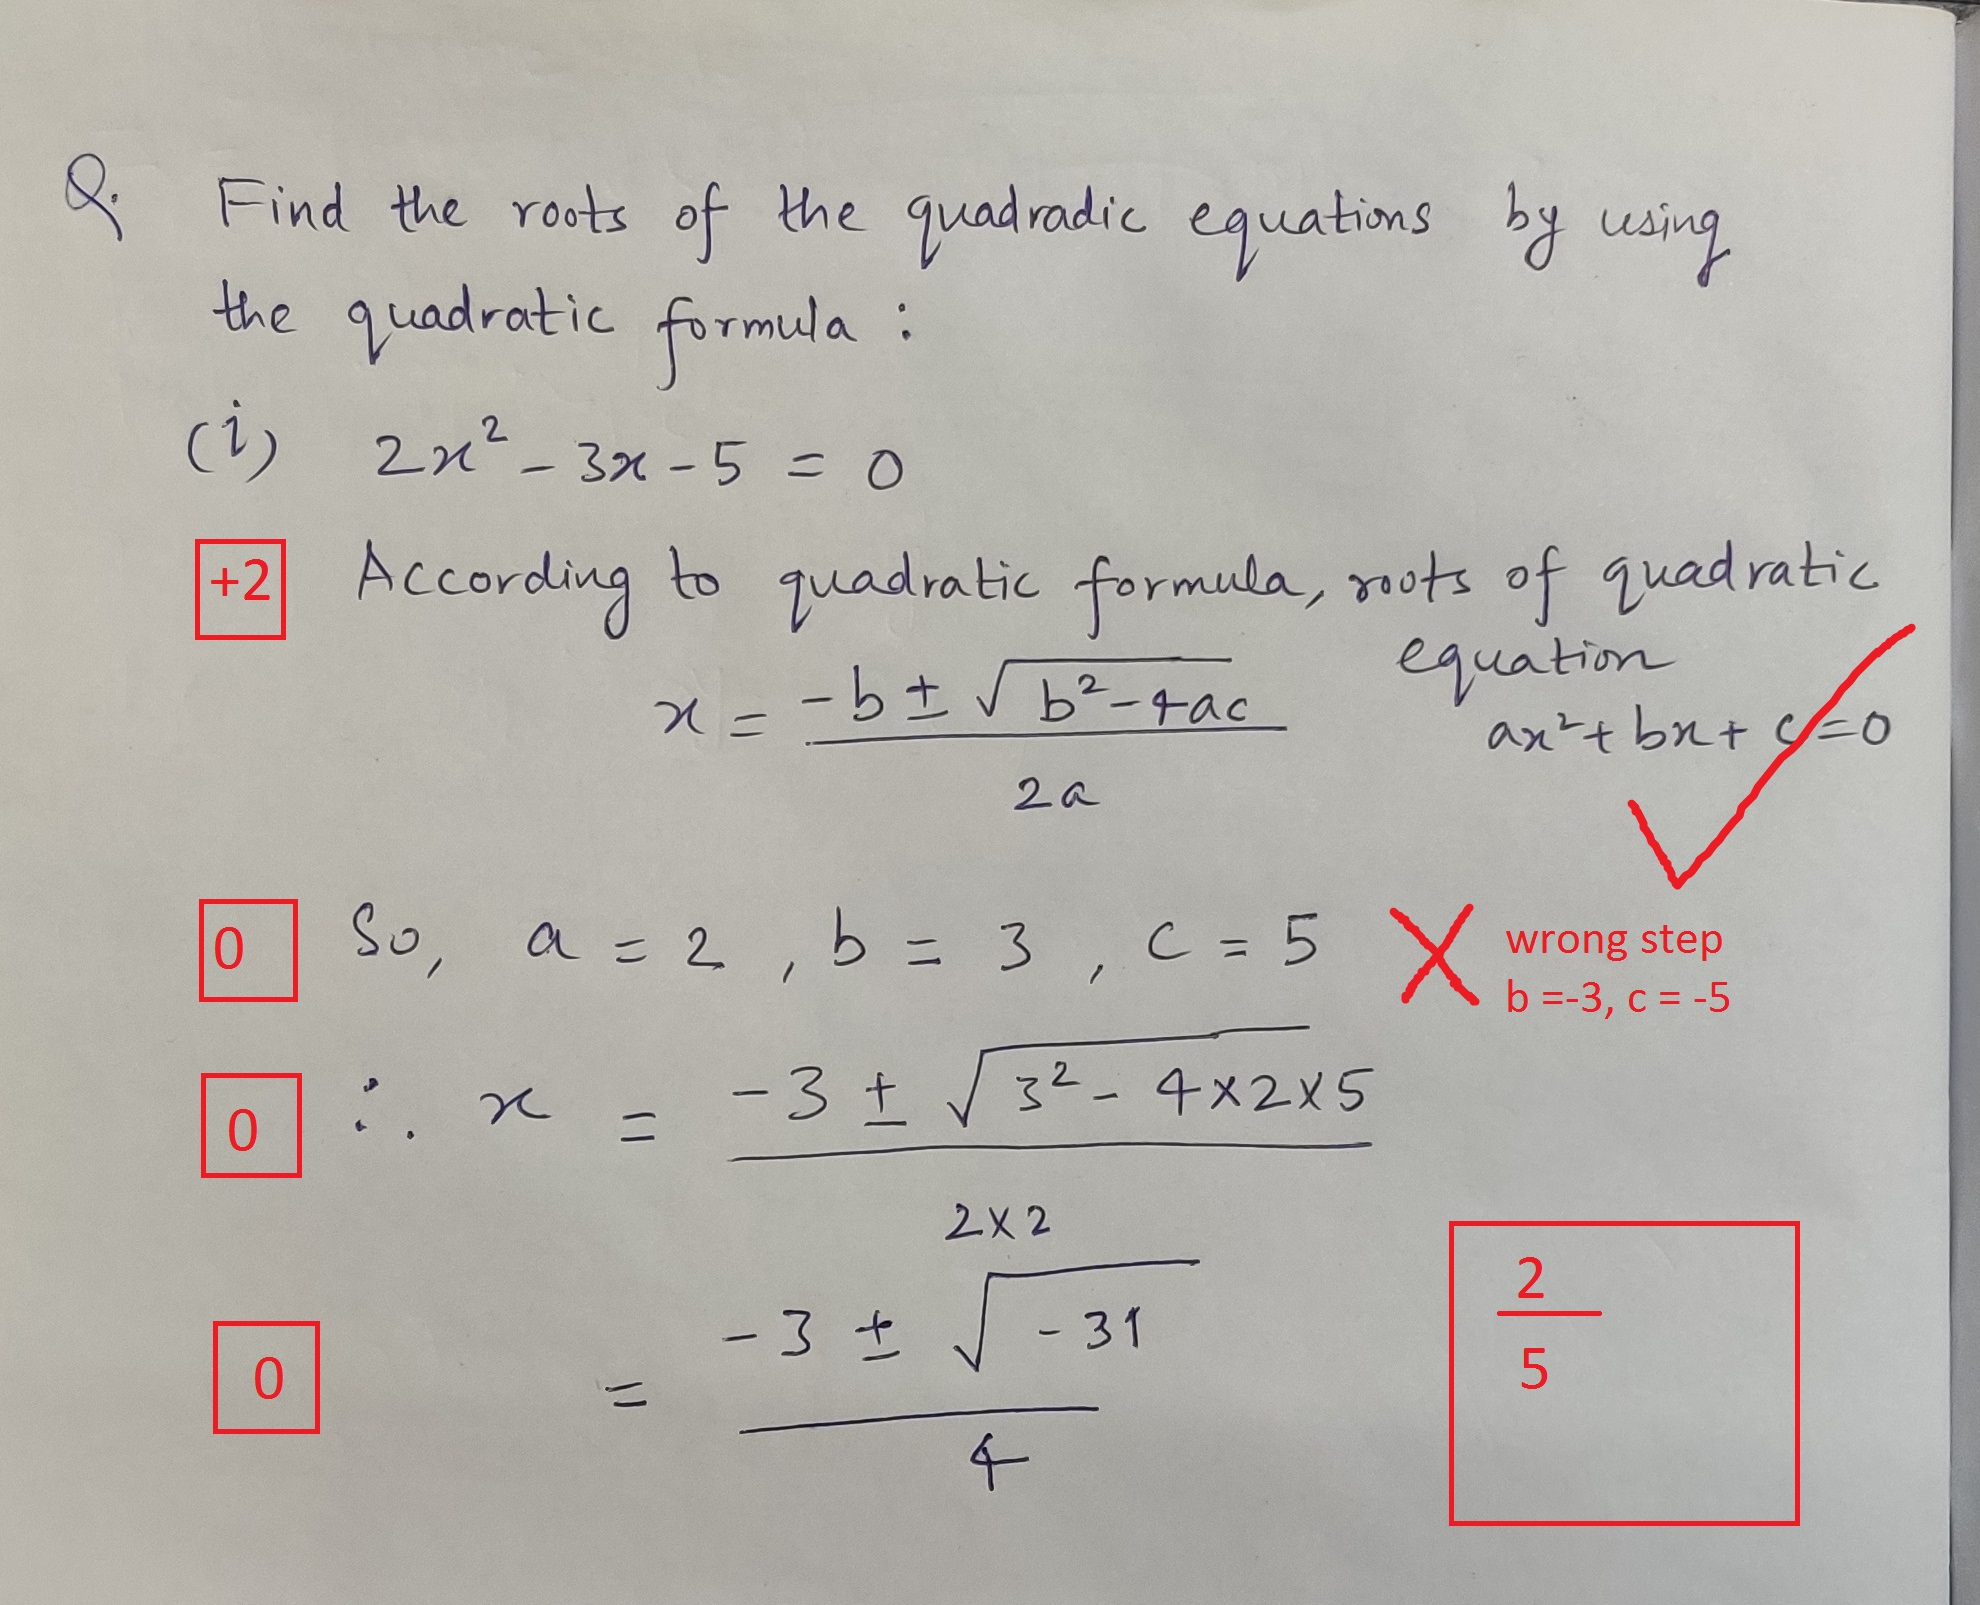 Q. Find the roots of the quadradic equations by using
the quadratic formula :
(i) 2x² - 3x - 5 = 0
+2 According to quadratic formula, roots of quadratic
equation
x = -b ± √b²-4ac ax²+bx+c=0
2a
0 So, a = 2 , b = 3 , c = 5 wrong step
b =-3, c = -5
0 ∴ x = -3 ± √3² - 4×2×5
2×2
0 = -3 ± √-31
4
2
5